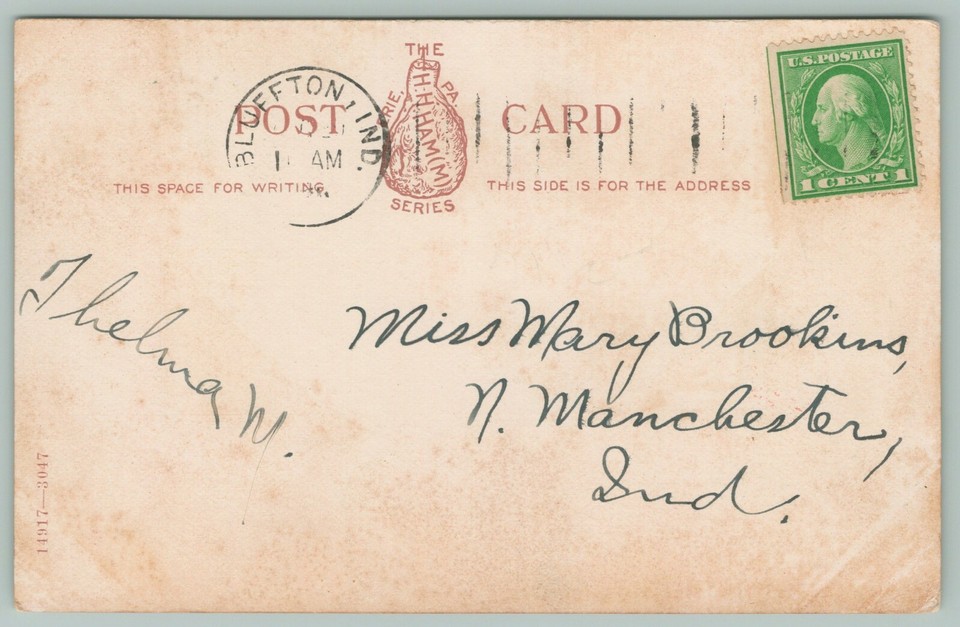 THE
H.H.HAM(M)
ERIE, PA.
SERIES
POST CARD
BLUFFTON, IND.
AM
U.S. POSTAGE
1 CENTS 1
THIS SPACE FOR WRITING.
THIS SIDE IS FOR THE ADDRESS
Thelma M.
Miss Mary Brookins,
N. Manchester,
Ind.
14917—3047